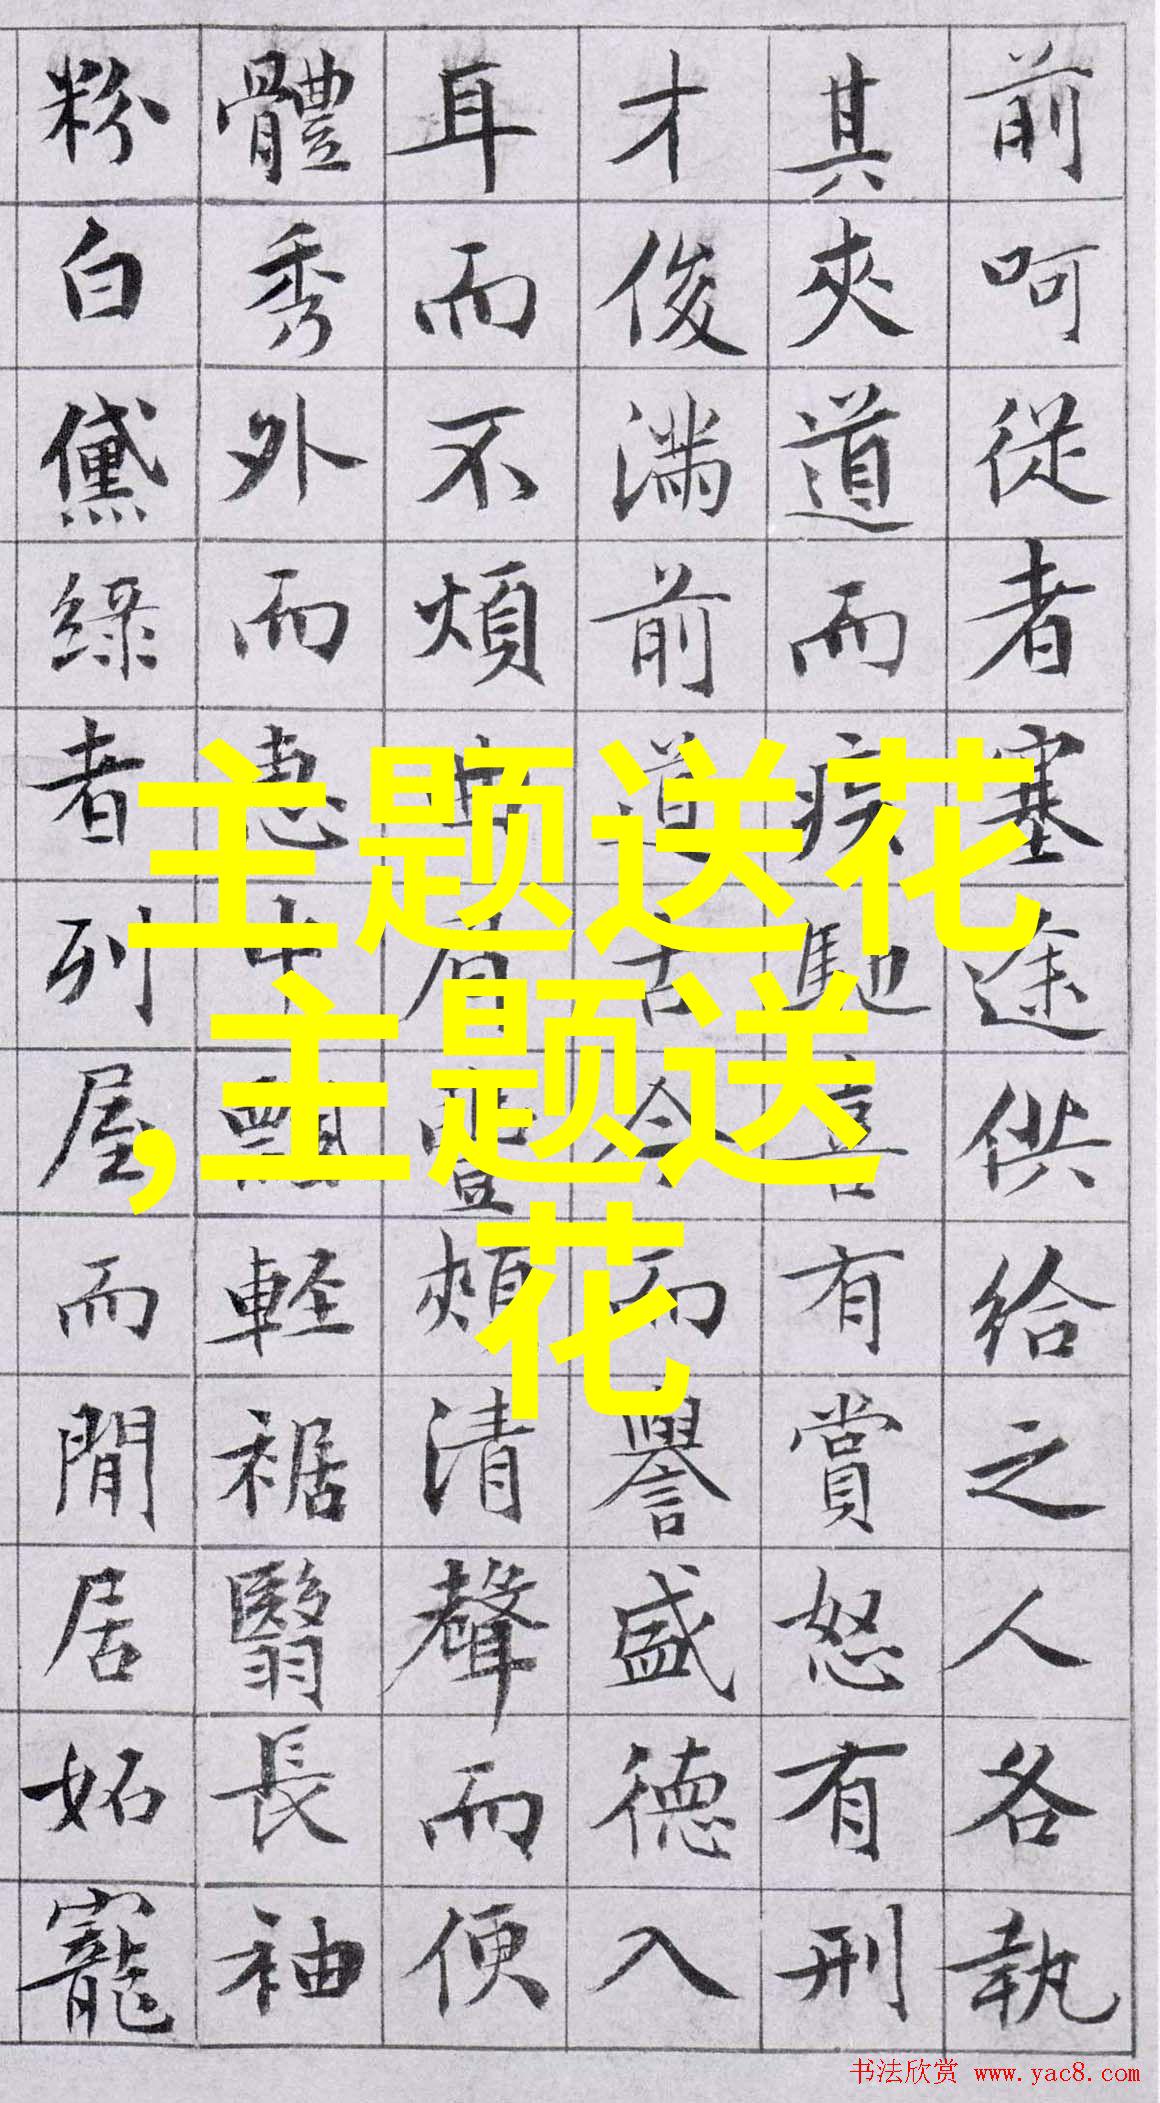 前呵從者塞途供給之人各執
其夾道而疾馳喜有賞怒有刑
才俊滿前道古今而譽盛德入
耳而不煩曲眉豐頰清聲而便
體秀外而惠中飄輕裾翳長袖
粉白黛綠者列屋而閒居妬寵
主题送花
,主题送
花
书法欣赏 www.yac8.com